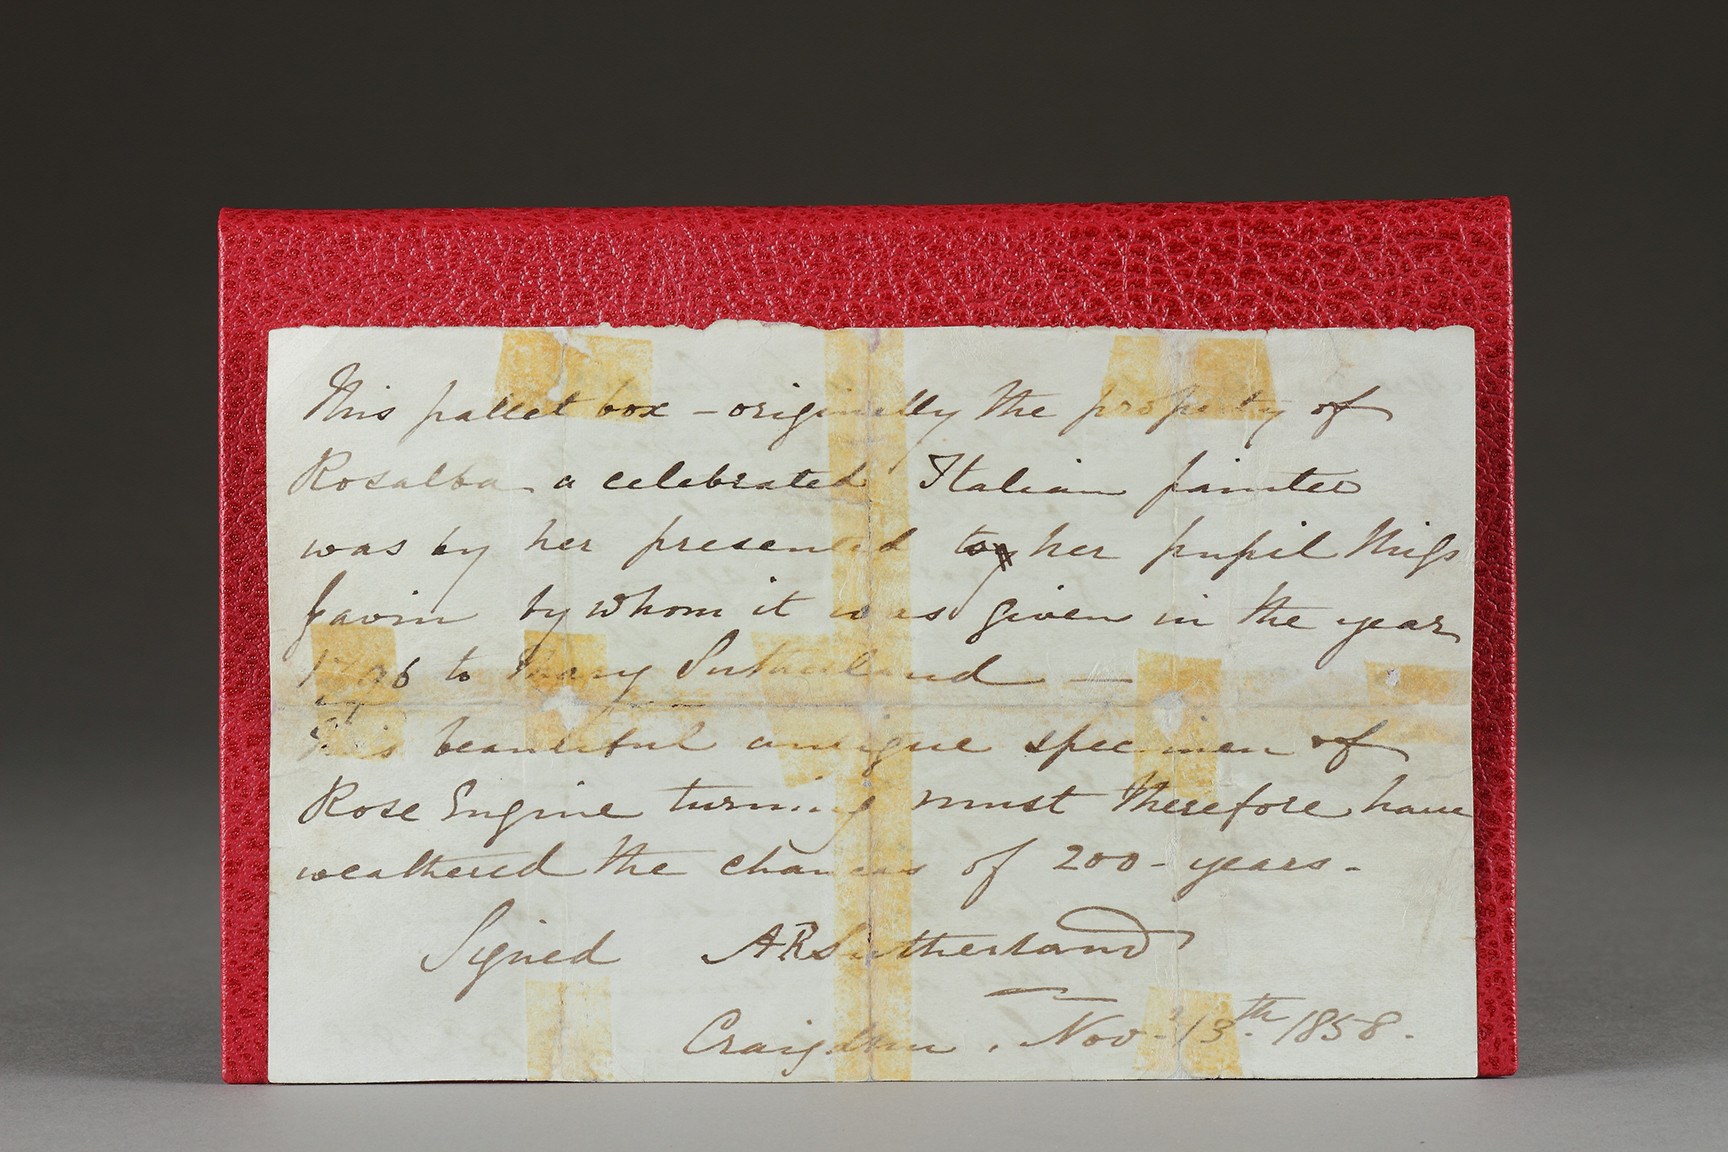 This pallet box – originally the property of
Rosalba a celebrated Italian painter
was by her presented to her pupil Miss
Gavin by whom it was given in the year
1796 to Mary Sutherland —
This beautiful antique specimen of
Rose Engine turning must therefore have
weathered the chances of 200 - years -
Signed AR Sutherland
Nov - 13th 1858 -